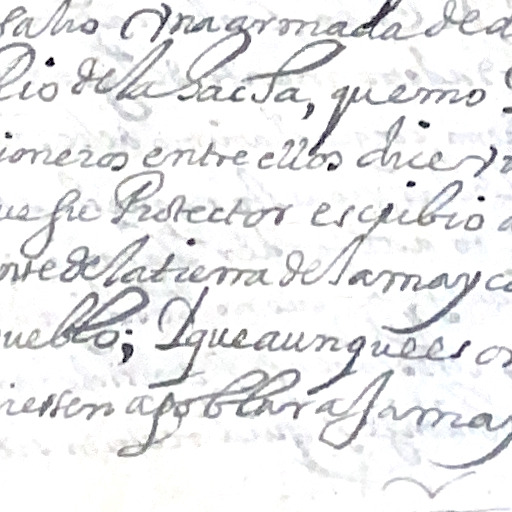 salio Una armada de d
Rio de la hacha, quemo
ioneros entre ellos diez n
ue su Protector escribio a
orre de la tierra de Jamayca
pueblo; Y que aunque es or
niessen a poblar a Jamay